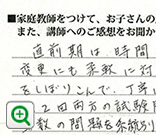 ■家庭教師をつけて、お子さんの
また、講師へのご感想をお聞か
直前期は、時間
夜里にも柔軟に対
をしぼりこんで、丁寧
2回両方の試験
数の問題を系統